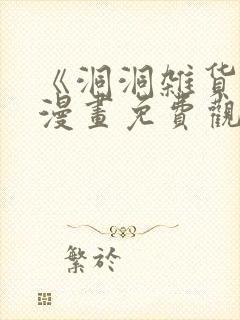 《洞洞雑货
漫畫免費觀
繁於